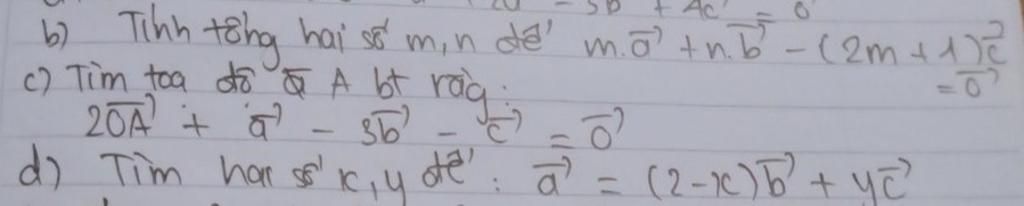 2u⃗ - 3b⃗ + 4c⃗ = 0⃗
b) Tính tổng hai số m, n để m.a⃗ + n.b⃗ - (2m + 1)c⃗ = 0⃗
c) Tìm toạ độ A bt rằg:
2OA⃗ + a⃗ - 3b⃗ - c⃗ = 0⃗
d) Tìm hai số x, y để: a⃗ = (2-x)b⃗ + yc⃗